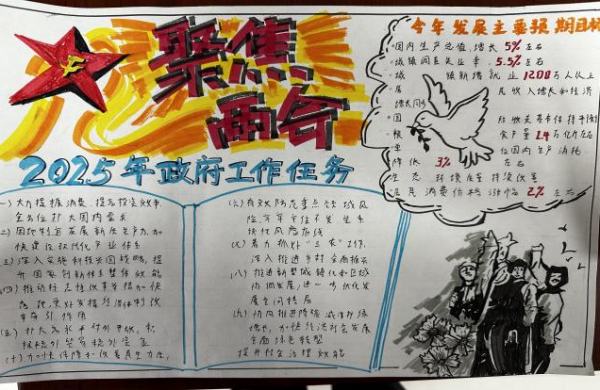 聚焦
两会
2025年政府工作任务
今年发展主要预期目标
国内生产总值增长5%左右
城镇调查失业率5.5%左右
城镇新增就业1200万人以上
居民收入增长和经济
增长同步
国际收支保持平衡
粮食产量1.4万亿斤左右
单位国内生产消耗
降低3%左右
生态环境质量持续改善
居民消费价格涨幅2%左右
一)大力提振消费、提高投资效率,
全方位扩大国内需求
二)因地制宜发展新质生产力,加
快建设现代化产业体系
三)深入实施科教兴国战略,提
升国家创新体系整体效能
(四)推动标志性改革举措加快
(五)扩大高水平对外开放,积
极稳外贸稳外资
(六)有效防范重点领域风
险,
(七)着力抓好"三农"工作,
深入推进乡村全面振兴
(八)推进新型城镇化和区域
协调发展,进一步优化发
展空间格局
(九)协同推进降碳减污扩绿
增长,加快经济社会发展
全面绿色转型